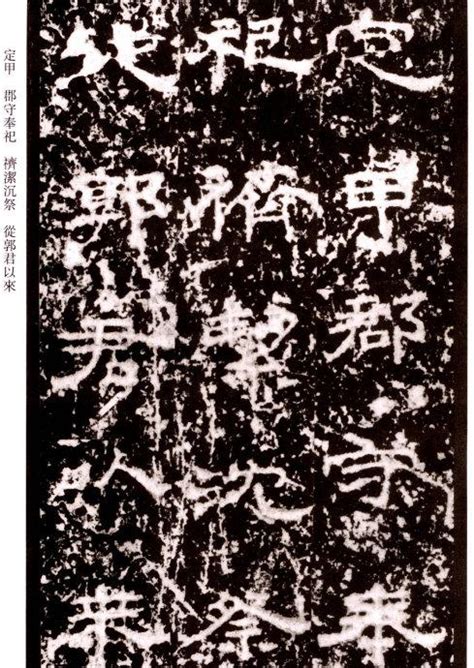 定甲郡守奉
祀絜沈祭
從郭君以來
定甲 郡守奉祀 潔沉祭 從郭君以來